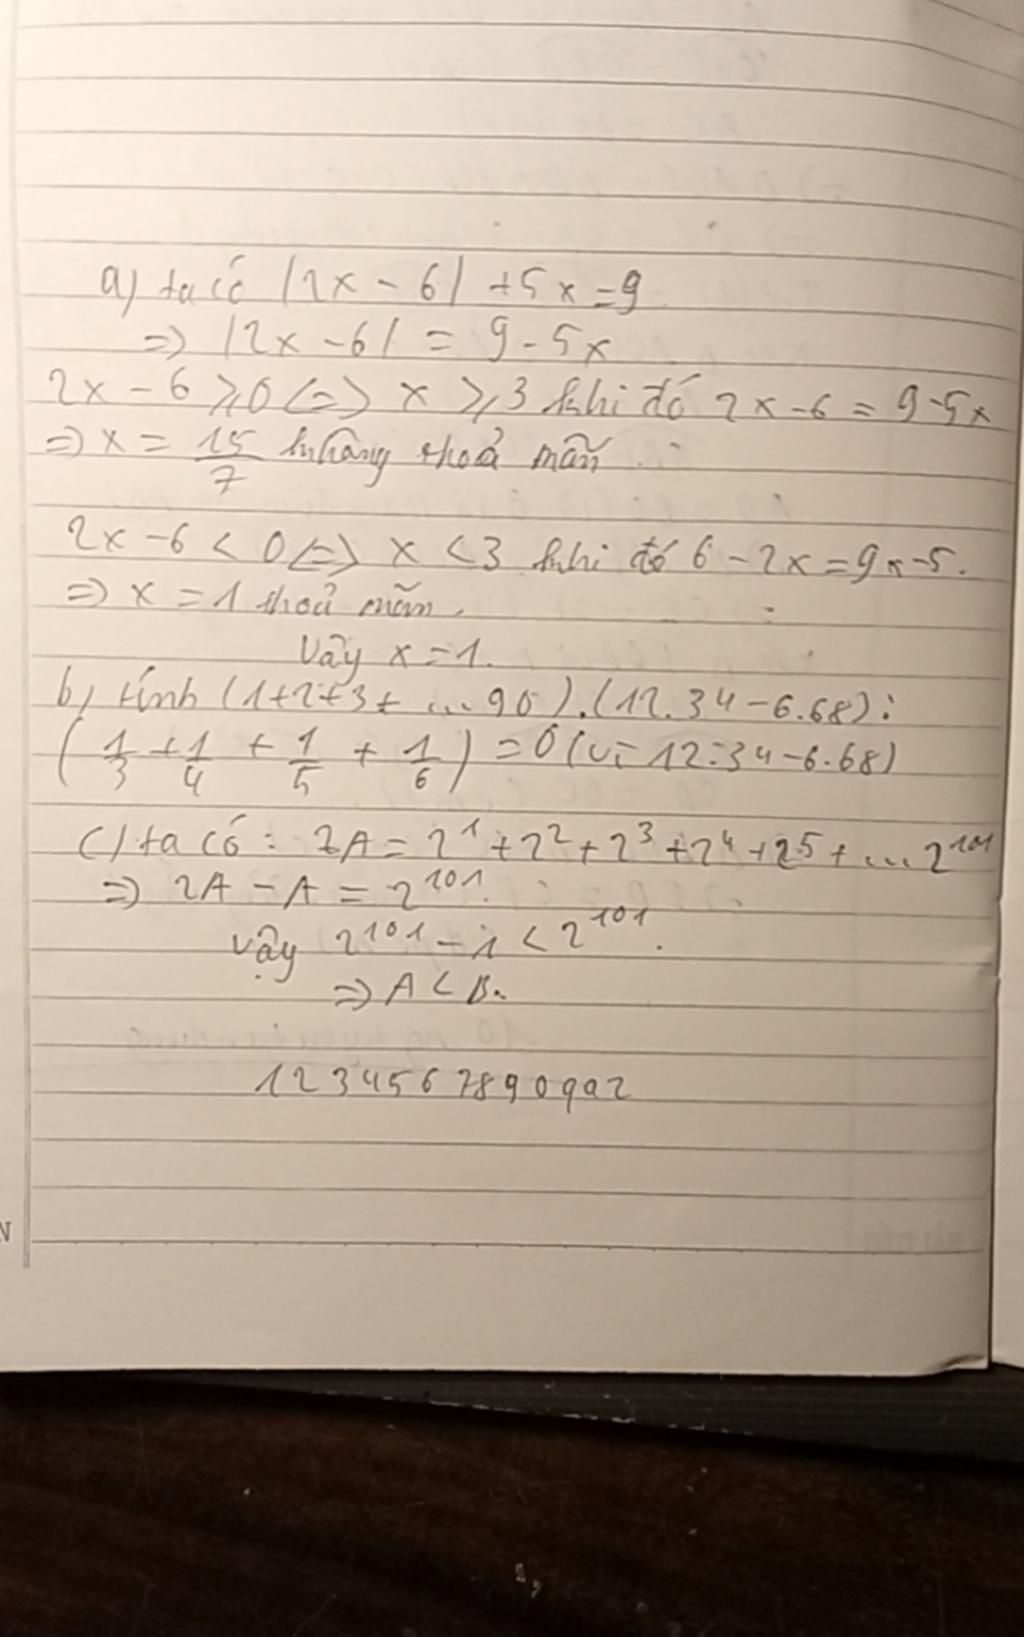 a) ta có |2x - 6| + 5x = 9
=> |2x - 6| = 9 - 5x
2x - 6 ⩾ 0 <=> x ⩾ 3 khi đó 2x - 6 = 9 - 5x
=> x = 15/7 không thoả mãn.
2x - 6 < 0 <=> x < 3 khi đó 6 - 2x = 9x - 5.
=> x = 1 thoả mãn.
Vậy x = 1.
b) tính (1+2+3+ ... 90).(12.34 - 6.68):
(1/3 + 1/4 + 1/5 + 1/6) = 0 (vì 12.34 - 6.68)
c) ta có: 2A = 2^1 + 2^2 + 2^3 + 2^4 + 2^5 + ... 2^101
=> 2A - A = 2^101.
Vậy 2^101 - 1 < 2^101.
=> A < B.
1234567890992
N